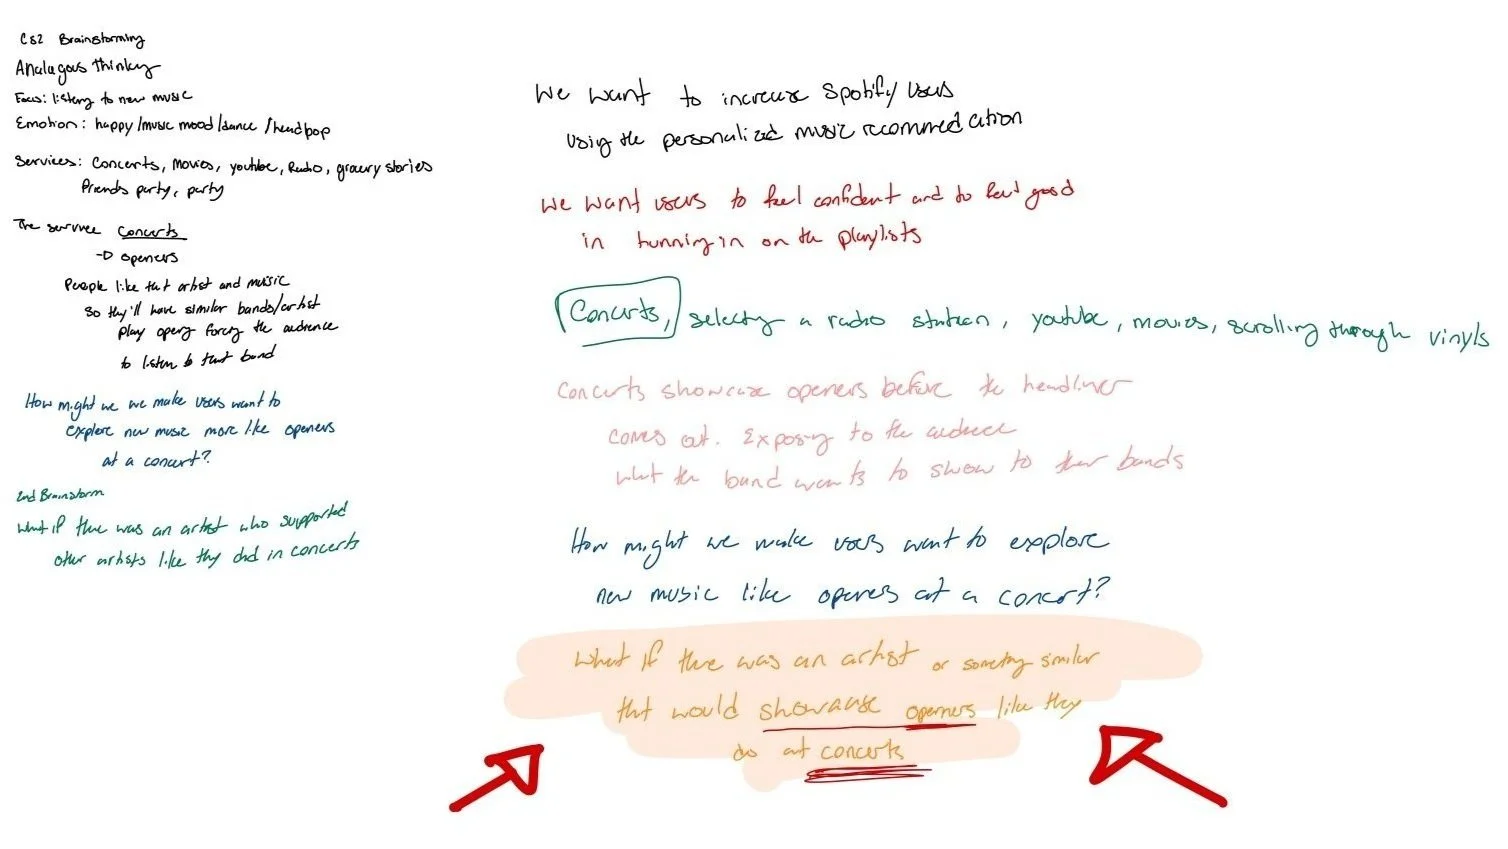 CS2 Brainstorming
Analagous thinky
Focus: listeng to new music
Emotion: happy/music mood/dance/headpop
Services: Concerts, movies, youtube, Radio, grocery stories
friends party, party
The service concerts
→ openers
People like that artist and music
so they'll have similar bands/artist
play openg forcing the audience
to listen to that band
How might we we make users want to
explore new music more like openers
at a concert?
2nd Brainstorm
What if there was an artist who supported
other artists like they did in concerts
We want to increase Spotify users
using the personalized music recommedation
We want users to feel confident and to feel good
in on the playlists
Concerts, selecting a radio station, youtube, movies, scrolling through vinyls
Concerts showcase openers before the headliner
comes out. Exposing to the audience
what the band wants to show to their bands
How might we make users want to explore
new music like openers at a concert?
What if there was an artist or something similar
that would showcase openers like they
do at concerts